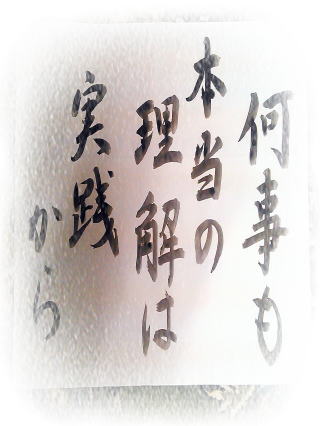 何事も
本当の
理解は
実践
から